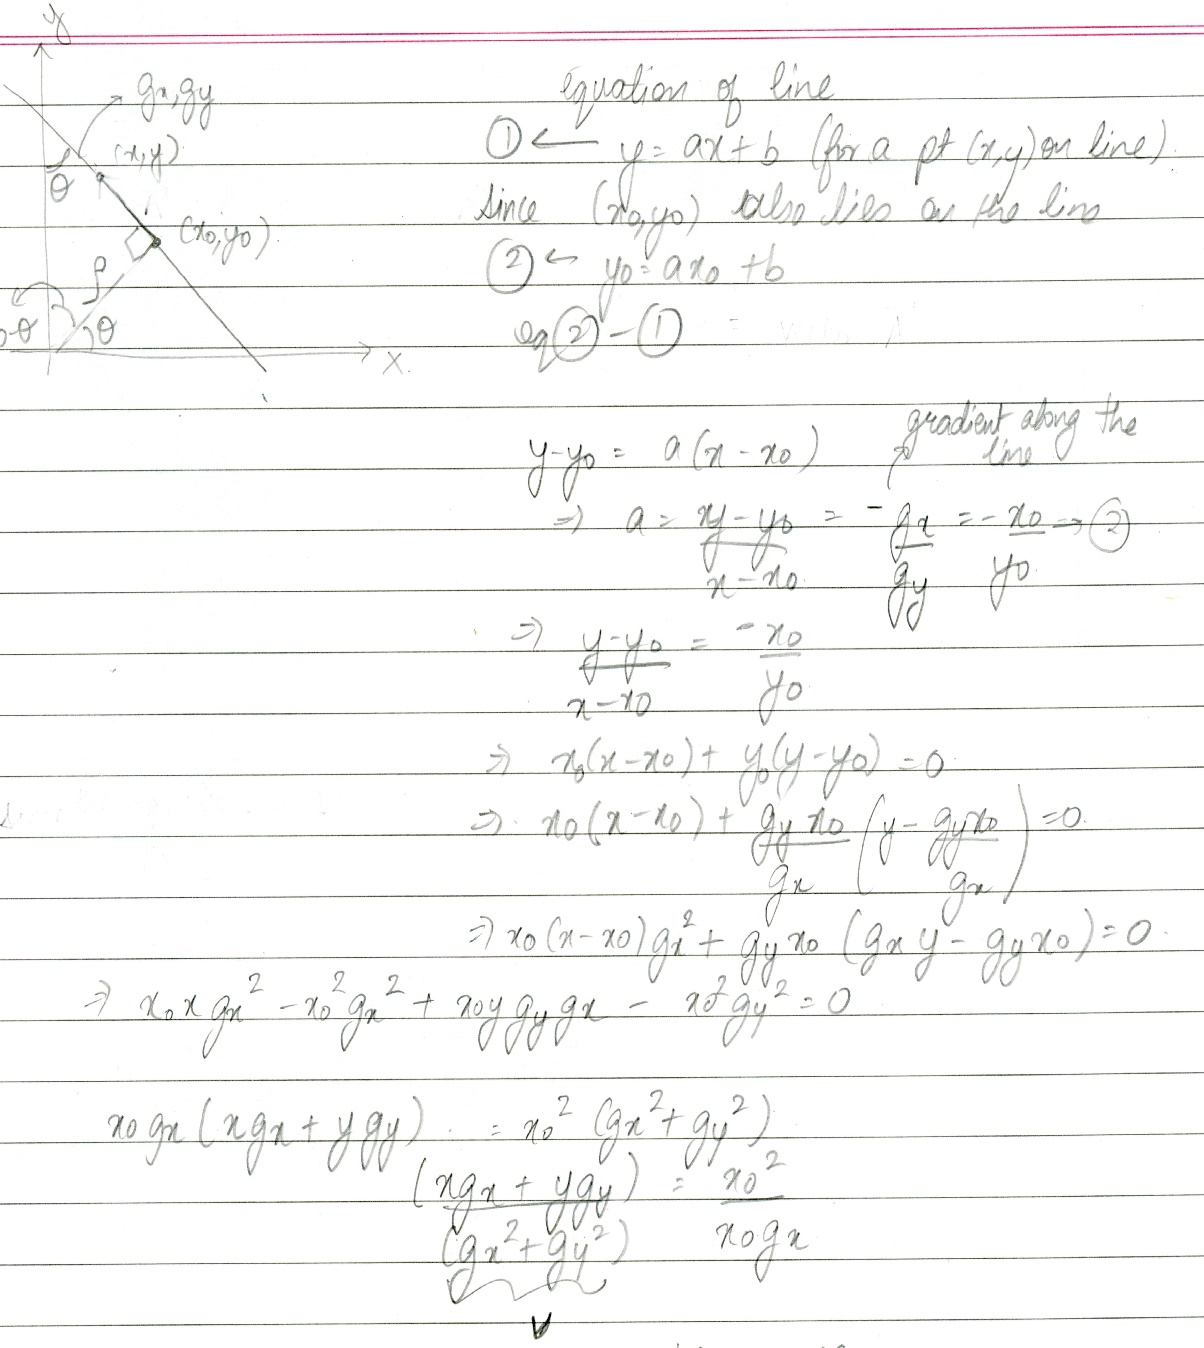 y
gx,gy
(x,y)
θ
(x0,y0)
ρ
θ
θ
x
equation of line
① ← y = ax + b (for a pt (x,y) on line)
since (x0,y0) also lies on the line
② ← y0 = ax0 + b
eq ② - ①
gradient along the line
y-y0 = a(x-x0)
⇒ a = y-y0/x-x0 = -gx/gy = -x0/y0 → ②
⇒ y-y0/x-x0 = -x0/y0
⇒ x0(x-x0) + y0(y-y0) = 0
⇒ x0(x-x0) + gy x0/gx (y - gyx0/gx) = 0
⇒ x0(x-x0)gx² + gy x0 (gx y - gy x0) = 0
⇒ x0 x gx² - x0² gx² + x0 y gy gx - x0² gy² = 0
x0 gx (x gx + y gy) = x0² (gx² + gy²)
(x gx + y gy)/(gx² + gy²) = x0²/x0 gx
v